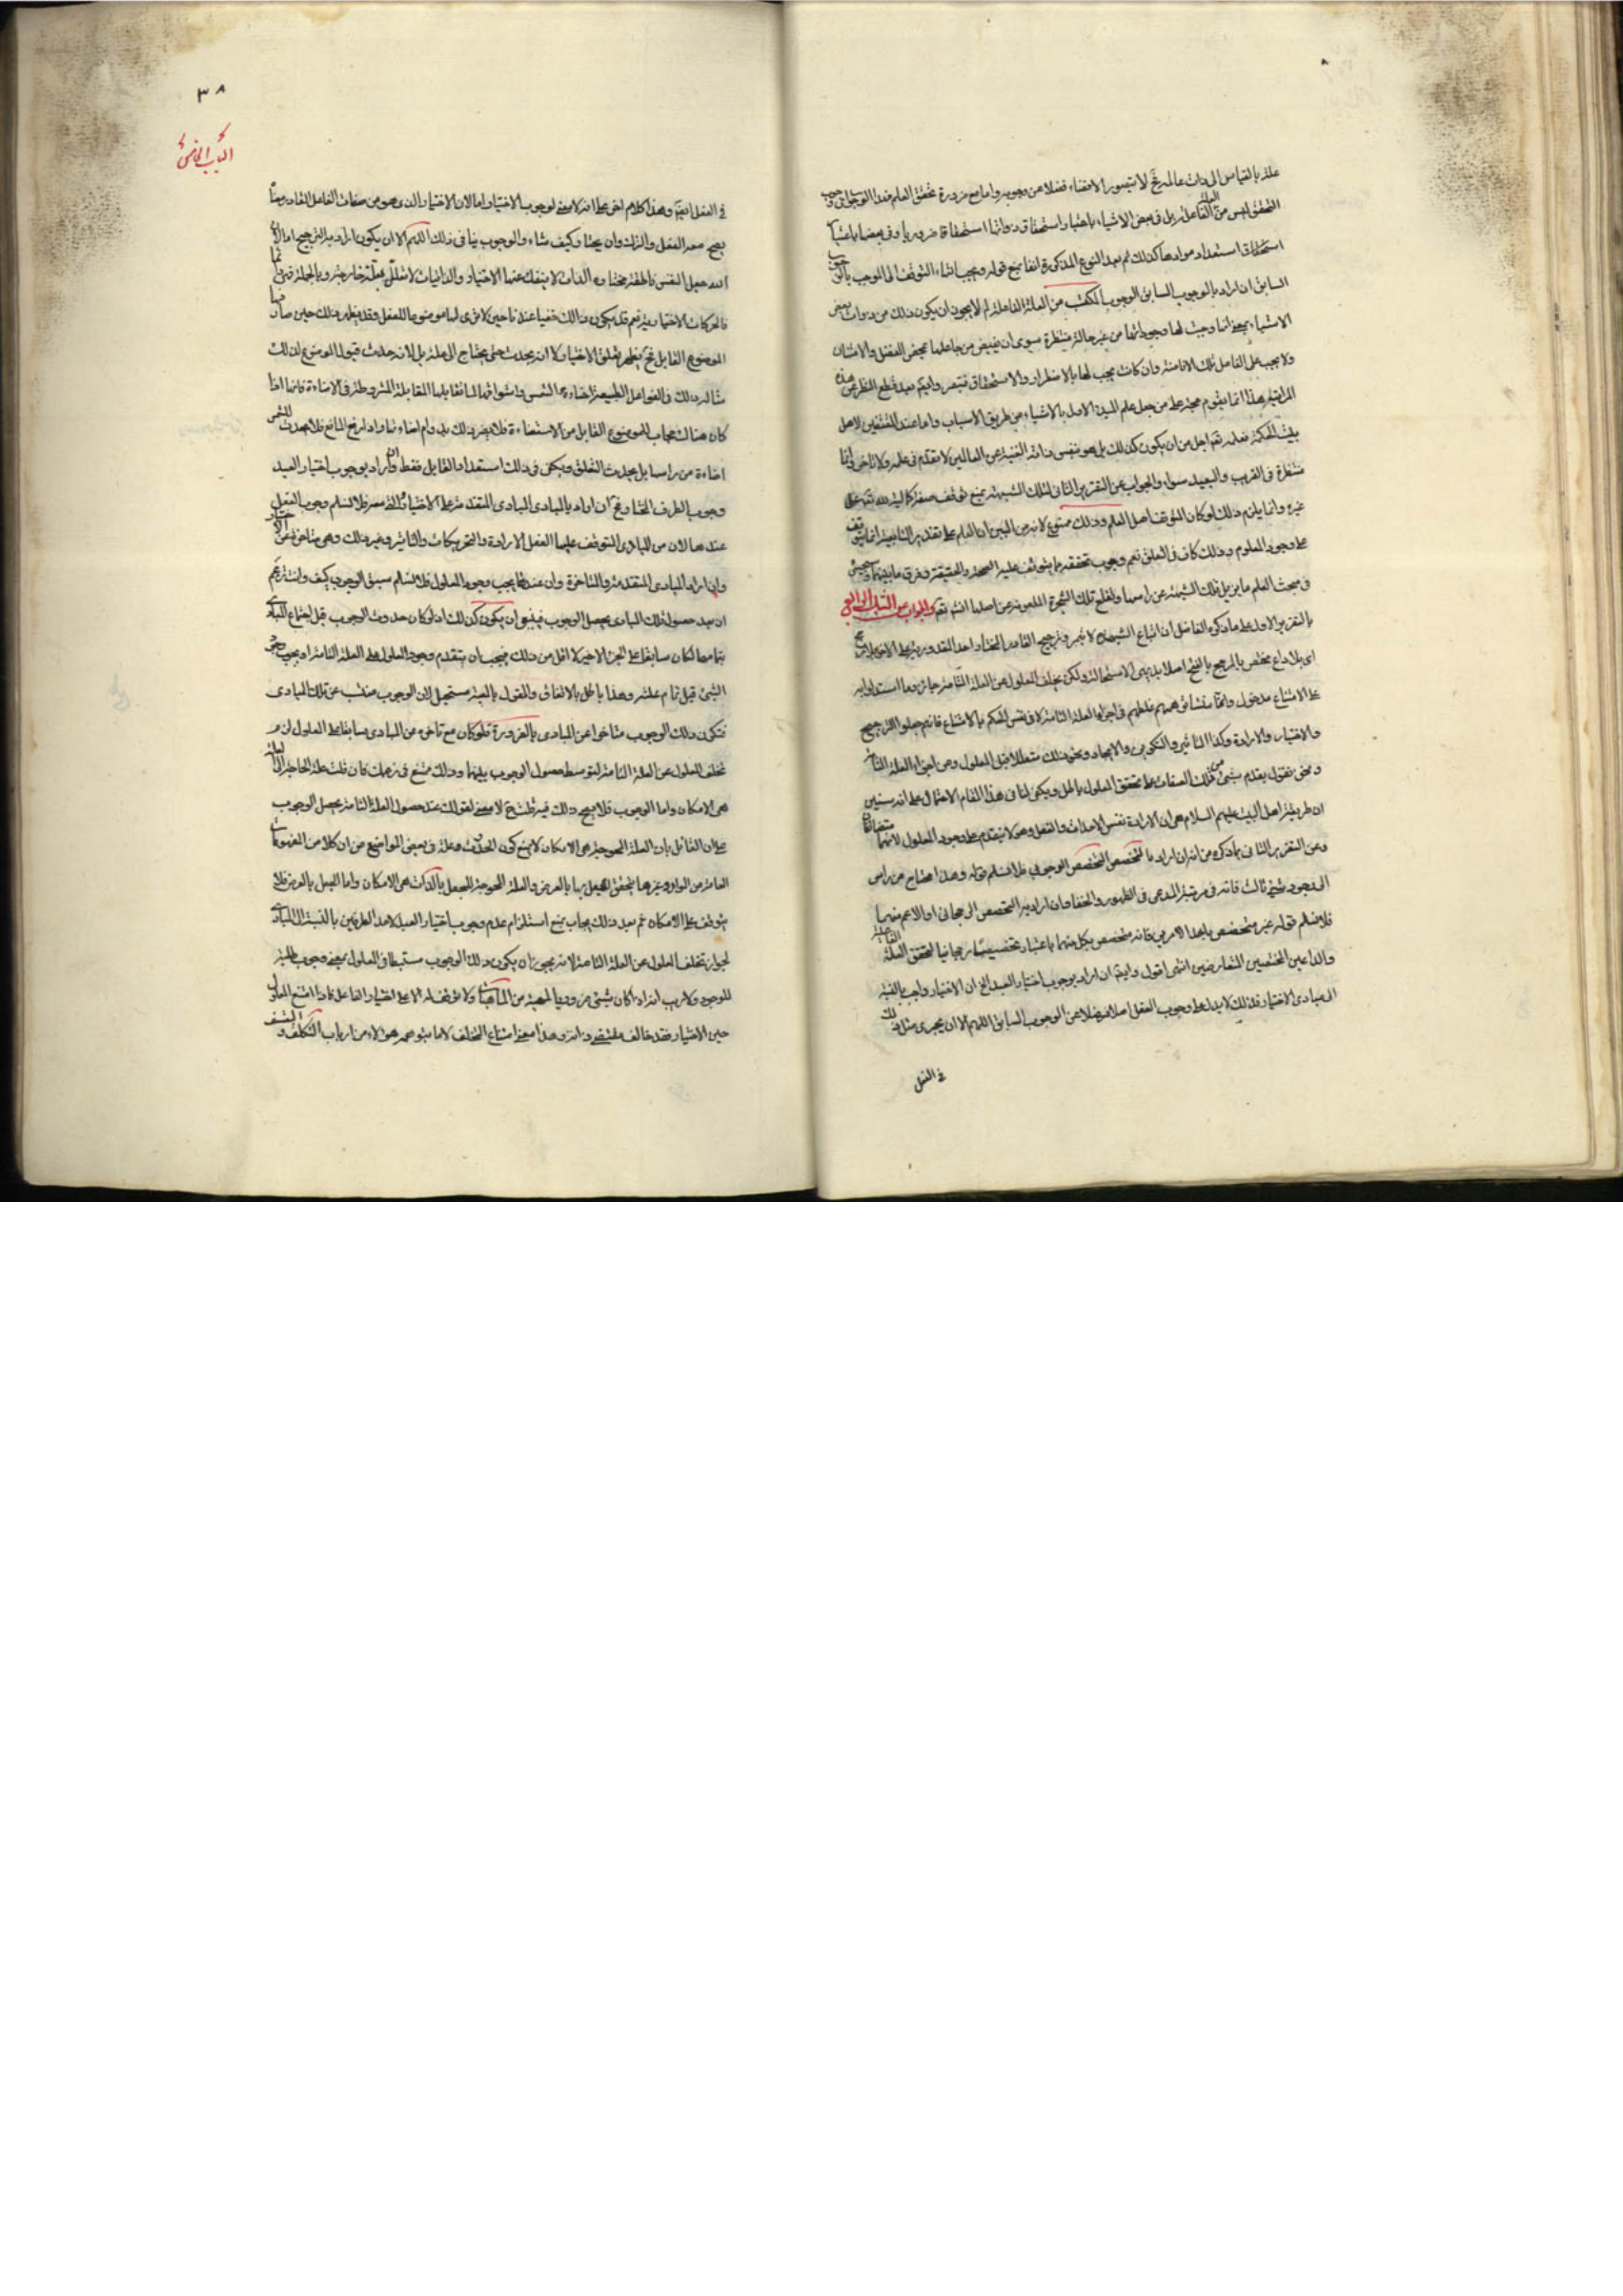 علة بالقياس الى ذات عالمه نخ لا يتصور الاقتضاء فضلا عن وجوبه واما مع ضرورة تحقق العلم فهذا الوجوب
التحقق ليس من العلة الفاعلة بل في بعض الاشياء باعتبار استحقاق ذواتها استحقاقا ضروريا وفي بعضها باعتبار
استحقاق استعداد موادها كذلك ثم بعد النوع المذكورة انفا يمنع قوله ويجب انتهاء التوقف الى الموجب بالوجوب
السابق ان اراد بالوجوب السابق الوجوب المكتسب من العلة الفاعلة لم لا يجوز ان يكون ذلك من ذوات بعض
الاشياء بمعنى انها وجبت لها وجوداتها من غير حالة منتظرة سوى ان يفيض من جاعلها بمحض الفضل والامتنان
ولا يجب على الفاعل تلك الافاضة وان كانت يجب لها بالاضطرار والاستحقاق فتبصر وليكم بعد قطع النظر عن هذه
المراتب فهذا انما يقوم حجة على من جعل علم المبدء الاول بالاشياء من طريق الاسباب واما عند المقتفين لاهل
بيت الحكمة فعلمه تعالى اجل من ان يكون كذلك بل هو بنفس ذاته الغنية عن العالمين لا تقدم في علمه ولا تاخر
متقررة في القريب والبعيد سواء والجواب عن التقرير الثاني لتلك الشبهة بمنع توقف صفة كمالية لله تعالى على
غيره وانما يلزم ذلك لو كان المتوقف اصل العلم وذلك ممنوع لانه من البين ان العلم على تقدير التابعية انما يتوقف
على وجود المعلوم وذلك كاف في التعلق نعم وجوب تحققه مما يتوقف عليه الصحة والحقيقة وفرق ما بينهما وسيجئ
في مبحث العلم ما يزيل تلك الشبهة عن راسها ولقلع تلك الشجرة الملعونة من اصلها انشم تقه والجواب عن الدليل الرابع
بالتقرير الاول على ما ذكره الفاضل ان اتباع الشبهات لا يثمر وترجيح القادر المختار احد المقدورين على الاخر بلا مرجح
اى بلا داع مختص بالمرجح بالفتح اصلا بديهى الاستحالة ولكن تخلف المعلول عن العلة التامة جائز وما استدلوا به
على الامتناع مدخول وانما منشأ توهمهم غلطهم في اجزاء العلة التامة لا في نفس الحكم بالامتناع فانهم جعلوا الترجيح
والاختيار والارادة وكذا التاثير والتكوين والايجاد ونحو ذلك متعلقا قبل المعلول ومن اجزاء العلة التامة
ونحن نقول بعدم سبق شئ من تلك الصفات على تحقق المعلول بالعلل ويكفى لنا في هذا المقام الاحتمال على انه سنبين
ان طريقة اهل البيت عليهم السلام هى ان الارادة نفس الاحداث والفعل وهو لا يتقدم على وجود المعلول لانهما متضايفان
وعن التقرير الثاني بما ذكره من انه ان اراد بالمخصص التخصيص الوجوبي فلا نسلم قوله وهذا احتاج من راس
الى وجود شئ ثالث فانه في مرتبة المدعى في الظهور والخفا وان اراد به التخصيص الرجحانى او الاعم منهما
فلا نسلم قوله غير متخصص باحدا لامرين فانه متخصص بكل منهما باعتبار تخصيصا رجحانيا لتحقق العلة الفاعلية
والداعيين المختصين المتعارضين انتهى اقول وايضا ان اراد بوجوب اختيار العبد الخ ان الاختيار واجب بالنسبة
الى مبادى الاختيار فذلك لا يدل على وجوب الفعل اصلا فضلا عن الوجوب السابق اللهم الا ان يجرى مثل ذلك
في الفعل
٣٨
الباب الخامس
في الفعل ايضا وهذا كلام اخر على انه لا معنى لوجوب الاختيار اما لان الاختيار الذى هو من صفات الفاعل القادر
يصح معه الفعل والترك وان يختار كيف شاء والوجوب ينافى ذلك اللهم الا ان يكون اراد به الترجيح اما لان
الله جعل النفس ناطقة مختارة الذات لا ينفك عنها الاختيار والذاتيات لا تعلل بعلة خارجة وبالجملة
فالحركات الاختيارية نعم قد يكون ذلك خفيا عندنا حين لا نرى لها موضوعا للفعل وقد يظهر ذلك حين صار
الموضوع القابل نخ يظهر تعلق الاختيار لا انه يحدث حتى يحتاج الى علة بل لانه حدثت قبول الموضوع لذلك
مثاله ذلك في الفواعل الطبيعية اضاءة الشمس واشراقها لما تقابلها المقابلة المشروطة في الاضاءة فانها اذا
كان هناك حجاب للموضوع القابل من الاستضاءة فلا يضر ذلك بدوام اضاءتها واذا رفع المانع فلا يحدث للشمس
اضاءة من راسها بل يحدث التعلق ويكفى في ذلك استعداد القابل فقط وان اراد بوجوب اختيار العبد
وجوب الطرف المختار نخ ان اراد بالمبادى المبادى المتقدمة على الاختيار والقدرة معه فلا نسلم وجوب الفعل
عندها لان من المبادى المتوقف عليها الفعل الارادة والتحريكات والتاثير وغير ذلك وهى متاخرة عن الاختيار
وان اراد المبادى المتقدمة والمتاخرة وان عندها يجب وجود المعلول فلا نسلم سبق الوجوب كيف وانتم زعمتم
ان بعد حصول تلك المبادى يحصل الوجوب فينبغى ان يكون كذلك اذ لو كان حدوث الوجوب قبل اجتماع المبادى
بتمامها لكان سابقا على الجزء الاخير لا اقل من ذلك فيجب ان يتقدم وجود المعلول على العلة التامة او يجب وجود
الشئ قبل تمام علته وهذا باطل بالاتفاق والقول بالمعية مستحيل لان الوجوب مسبب عن تلك المبادى
فتكون ذلك الوجوب متاخرا عن المبادى بالضرورة فلو كان مع تاخره عن المبادى سابقا على المعلول لزم
تخلف المعلول عن العلة التامة لتوسط حصول الوجوب بينهما وذلك ممتنع في زعمك فان قلت علة الحاجة الى العلة
هى الامكان واما الوجوب فلا يصح ذلك فيه قلت نخ لا معنى لقولك عند حصول العلة التامة يحصل الوجوب
على ان القائل بان العلة المحوجة هى الامكان لا يمنع كون الحدوث وعلته في بعض المواضع من ان كلا من المفهومات
العامة من الوازم وغيرها يتحقق الجعل بها بالعرض والعلة المحوجة للجعل بالذات هى الامكان واما الجعل بالعرض فلا
يتوقف على الامكان ثم بعد ذلك يجاب بمنع استلزام عدم وجوب اختيار العبد لاحد الطرفين بالنسبة الى المبادى
لجواز تخلف المعلول عن العلة التامة لانه يجوز ان يكون ذلك الوجوب مستنبطا في المعلول بمعنى وجوب طلبه
للوجود ولا ريب انه اذا كان شئ من وفيا لمعية من الماهيات ولا توقف له الا على اختيار الفاعل فاذا امتنع المعلول
حين الاختيار فقد خالف مقتضى ذاته وهذا معنى امتناع التخلف لا ما يتوهمه هؤلاء من ارباب التكلف والتعسف